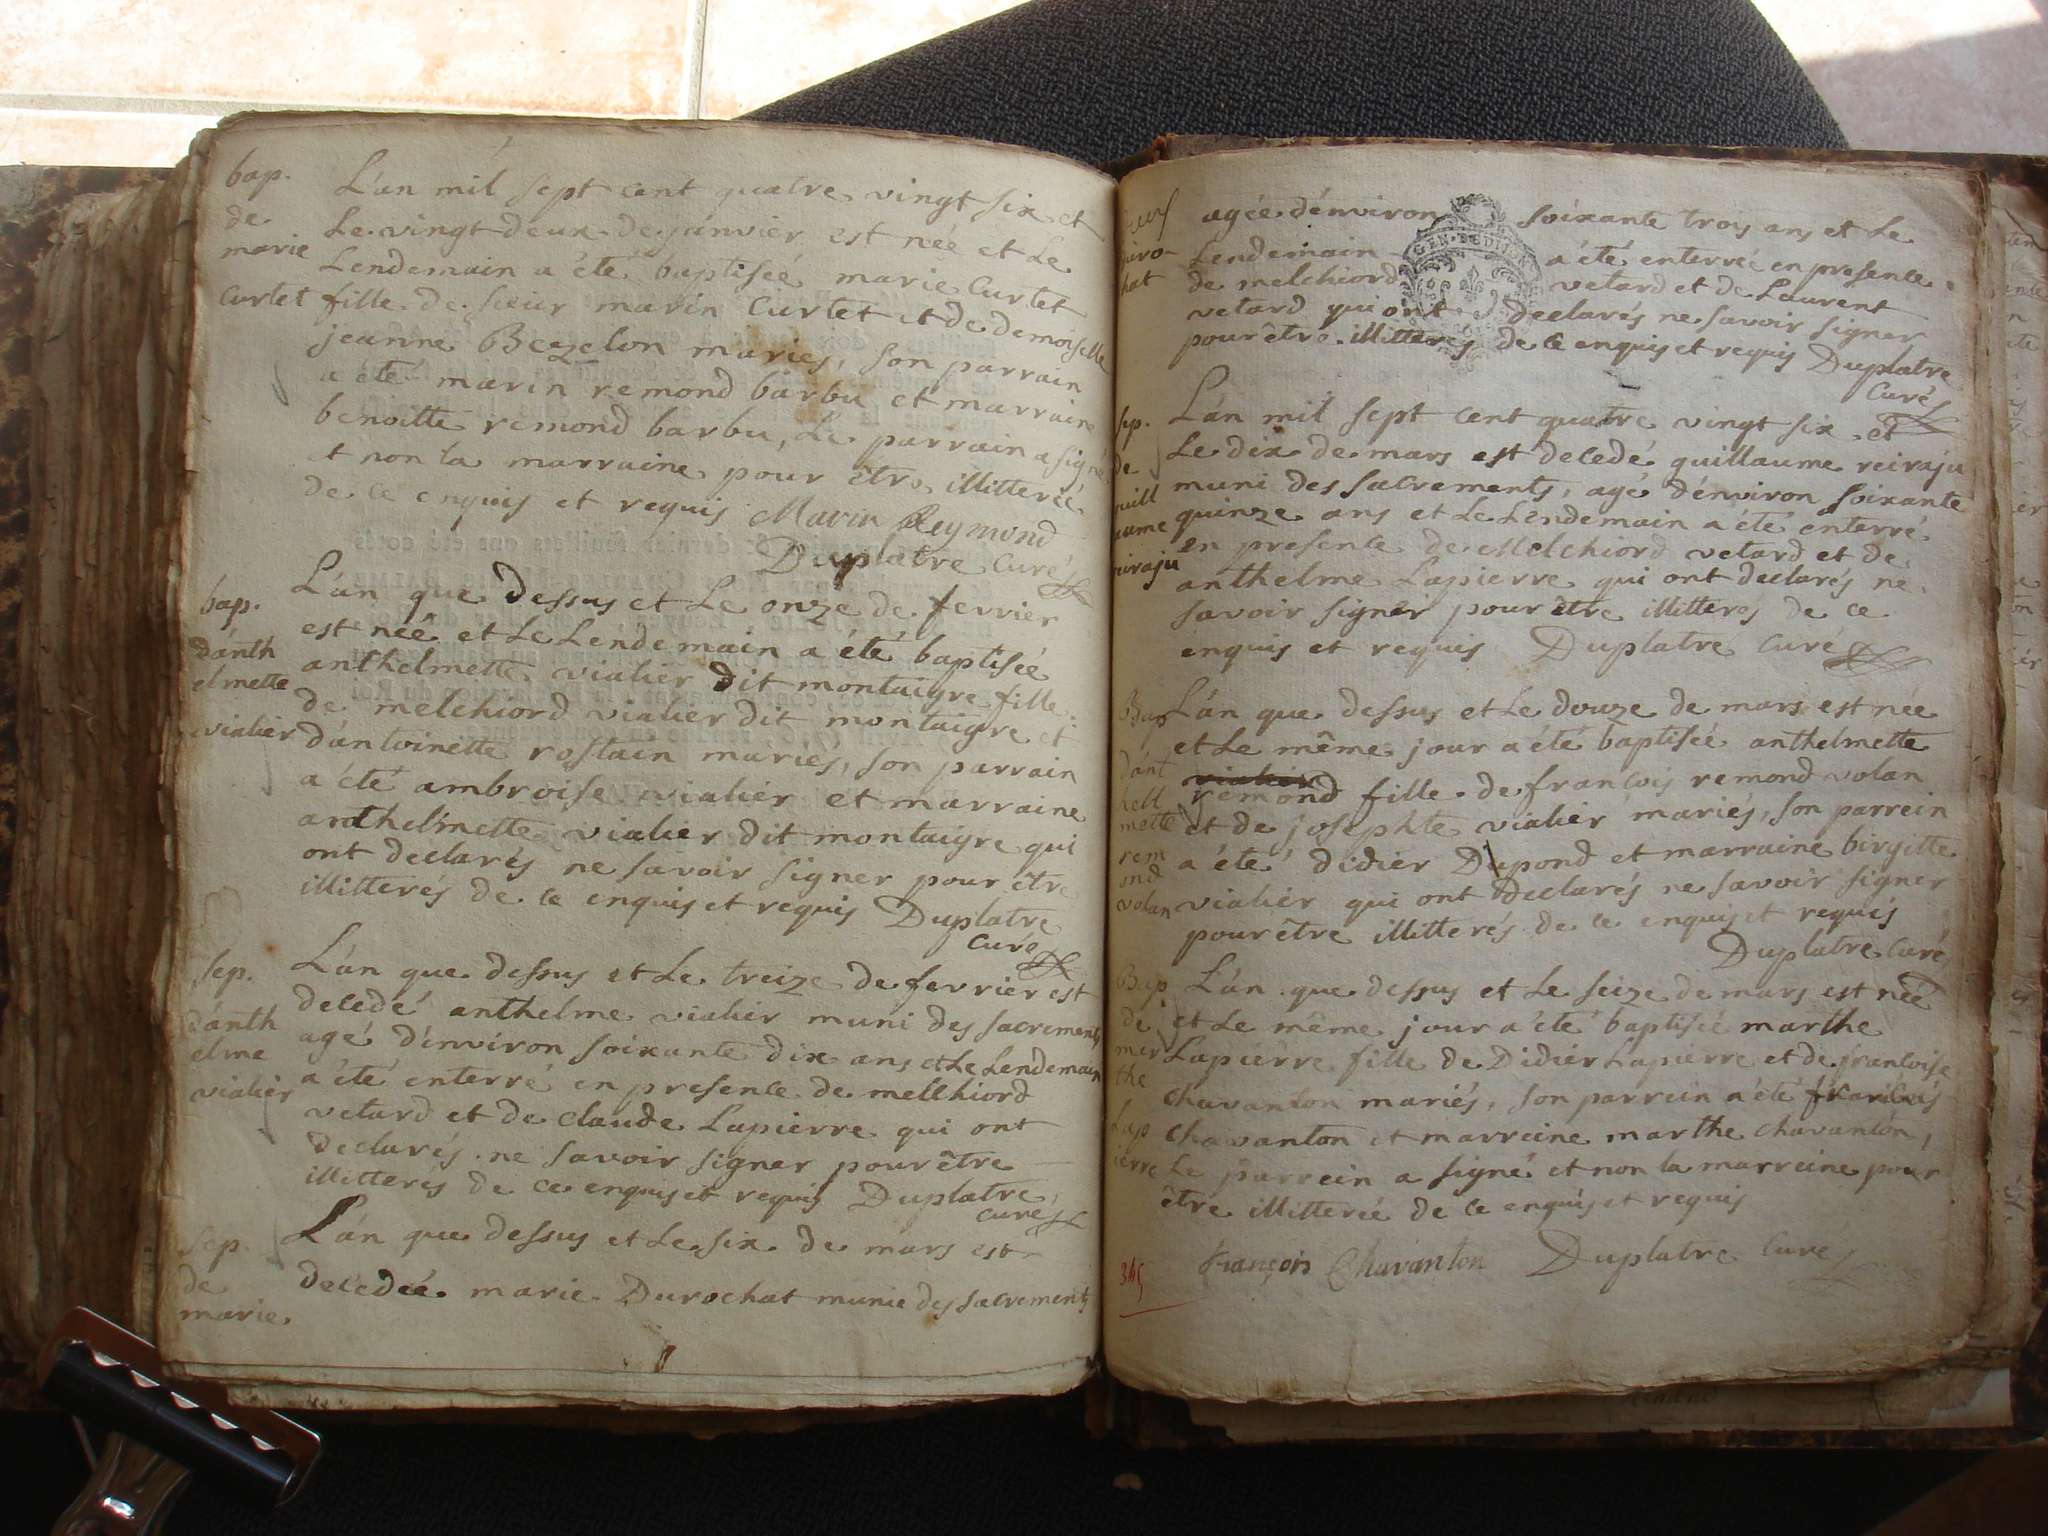 bap.
de
marie
Curtet
L'an mil sept cent quatre vingt six et
Le vingt deux de janvier est née et Le
Lendemain a été baptisée marie Curtet
fille de sieur marin Curtet et de demoiselle
jeanne Bezelon mariés, son parrain
a été marin remond barbu et marraine
benoitte remond barbu, Le parrain a signé
et non la marraine pour être illitterée
de ce enquis et requis Marin Reymond
Duplatre Curé
bap.
d'anth
elmette
vialier
L'an que dessus et Le onze de fevrier
est née et Le Lendemain a été baptisée
anthelmette vialier dit montaigre fille
de melchiord vialier dit montaigre et
d'antoinette rostain mariés, son parrain
a été ambroise vialier et marraine
anthelmette vialier dit montaigre qui
ont declarés ne savoir signer pour être
illitterés de ce enquis et requis Duplatre
Curé
sep.
d'anth
elme
vialier
L'an que dessus et Le treize de fevrier est
decedé anthelme vialier muni des sacrements
agé d'environ soixante dix ans et Le Lendemain
a été enterré en presence de melchiord
vetard et de claude Lapierre qui ont
declarés ne savoir signer pour être
illitteres de ce enquis et requis Duplatre
curé
sep.
de
marie
L'an que dessus et Le six de mars est
decedée marie Durochat munie des sacrements
duro-
hat
agée d'environ soixante trois ans et Le
Lendemain a été enterrée en presence
de melchiord vetard et de Laurent
vetard qui ont declarés ne savoir signer
pour être illitterés de ce enquis et requis Duplatre
Curé
GEN. DE DIJON
sep.
de
guill
aume
reiraju
L'an mil sept cent quatre vingt six et
Le dix de mars est decedé guillaume reiraju
muni des sacrements, agé d'environ soixante
quinze ans et Le Lendemain a été enterré
en presence de Melchiord vetard et de
anthelme Lapierre qui ont declarés ne
savoir signer pour être illitterés de ce
enquis et requis Duplatre Curé
Bap
d'ant
hell
mette
rem
ond
volan
L'an que dessus et Le douze de mars est née
et Le même jour a été baptisée anthelmette
vialier
remond fille de françois remond volan
et de josephte vialier mariés, son parrein
a été didier Dupond et marraine birgitte
vialier qui ont declarés ne savoir signer
pour être illitterés de ce enquis et requis
Duplatre Curé
Bap
de
mar
the
Lap
ierre
L'an que dessus et Le seize de mars est née
et Le même jour a été baptisée marthe
Lapierre fille de Didier Lapierre et de francoise
chavanton mariés, son parrein a été francois
chavanton et marreine marthe chavanton,
Le parrein a signé et non la marreine pour
être illitterée de ce enquis et requis
françois Chavanton Duplatre Curé